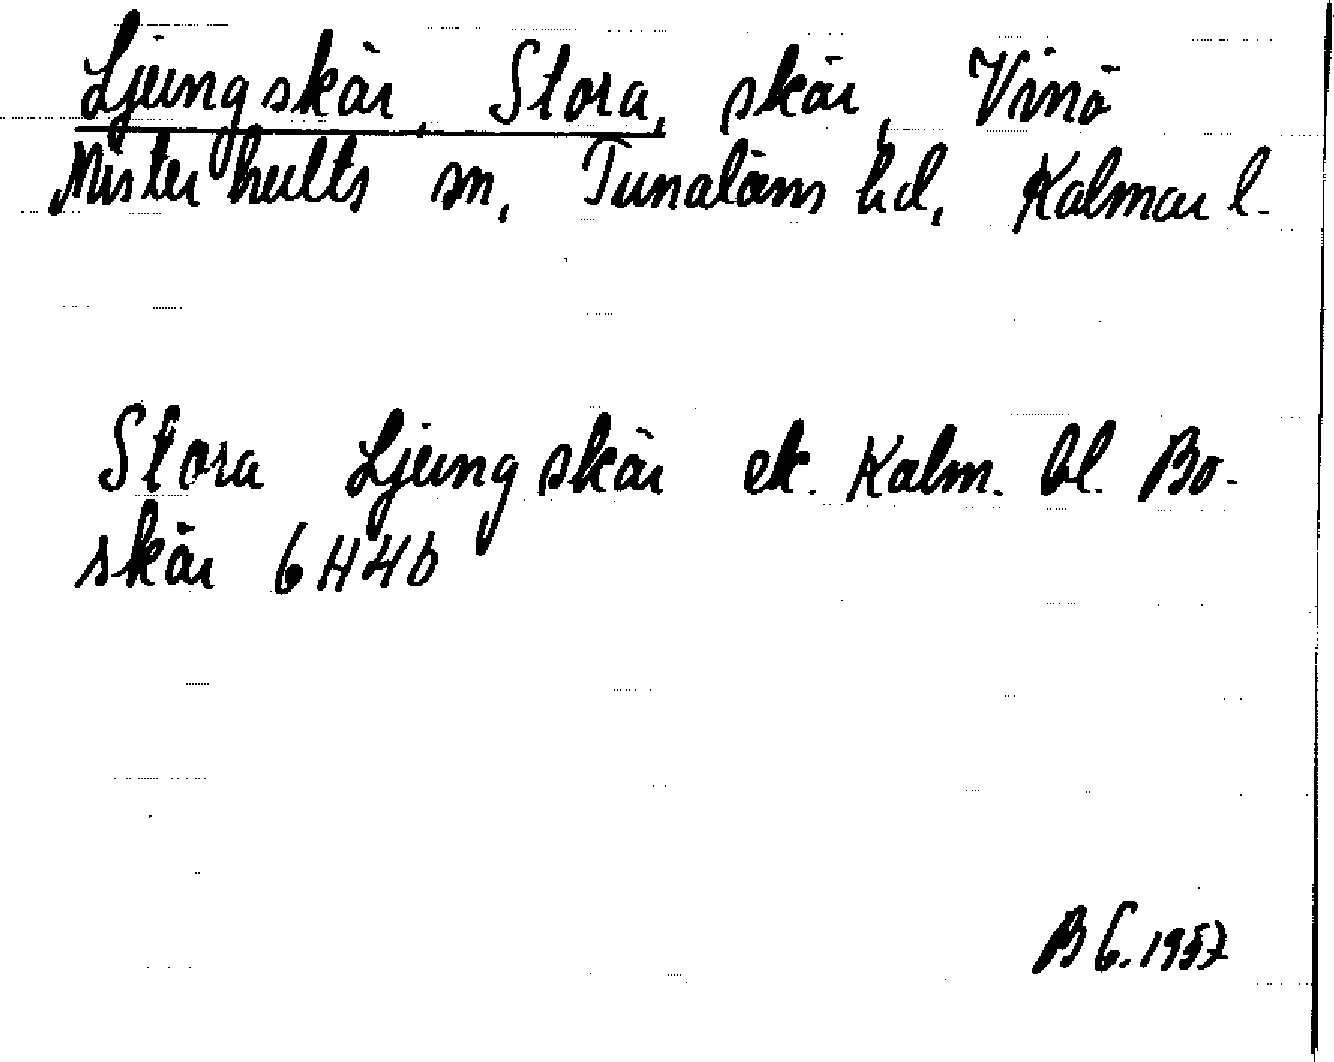 Ljungskär, Stora, skär, Vinö
Misterhults sn, Tunaläns hd, Kalmar l.
Stora Ljungskär ek. Kalm. bl. Bo-
skär 6H4b
B G. 1957